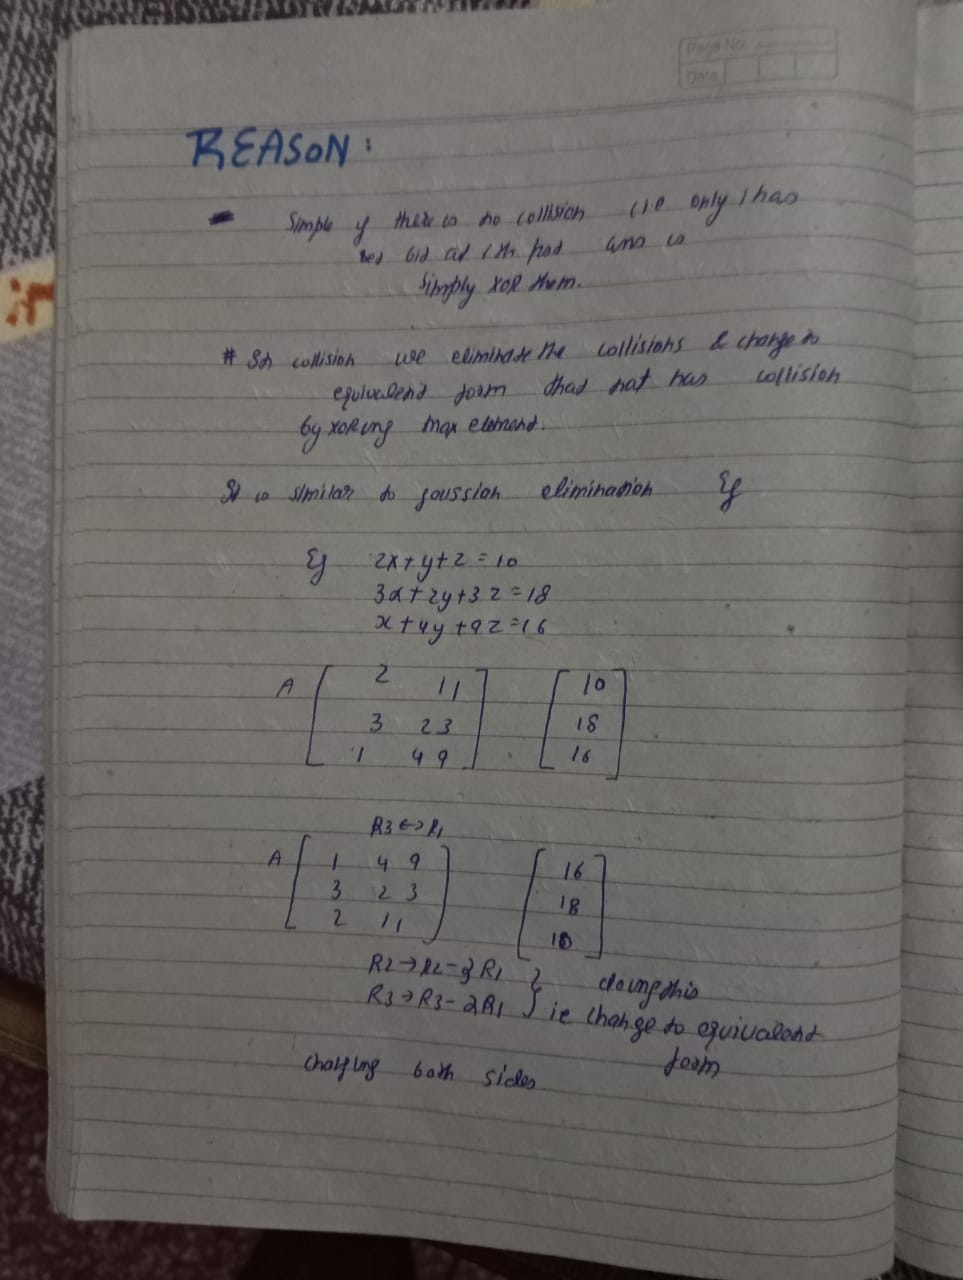 Page No
Date
REASON:
- Simple if there is no collision (ie only 1 has
set bid at ith pod ans is
simply XOR them.
# In collision we eliminate the collisions & change to
equivalent form thad not has collision
by XORing max element.
It is similar to gaussian elimination Eg
Eg 2x+y+z=10
3x+2y+3z=18
x+4y+9z=16
A [ 2 11 ] [ 10 ]
3 23 18
1 4 9 16
R3↔R1
A [ 1 4 9 ] [ 16 ]
3 2 3 18
2 11 10
R2→R2-3R1 } doing this
R3→R3-2R1 } ie change to equivalent
form
changing both sides